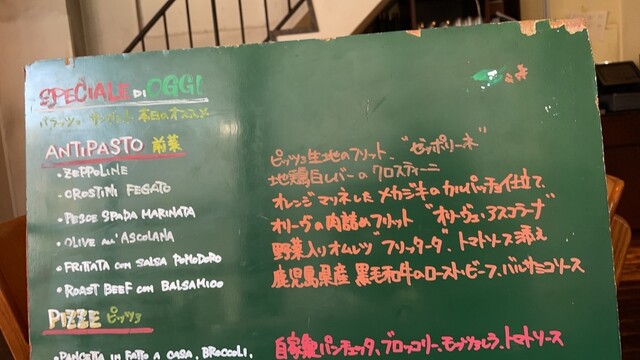 SPECIALE DI OGGI
パラッツォ サングスト 本日のオススメ
ANTIPASTO 前菜
・ZEPPOLINE ピッツァ生地のフリット、"ゼッポリーネ"
・CROSTINI FEGATO 地鶏白レバーのクロスティーニ
・PESCE SPADA MARINATA オレンジマリネしたメカジキのカルパッチョ仕立て、
・OLIVE ALL'ASCOLANA オリーヴの肉詰めフリット "オリーヴェ・アスコラーナ"
・FRITTATA CON SALSA POMODORO 野菜入りオムレツ"フリッタータ"、トマトソース添え
・ROAST BEEF CON BALSAMICO 鹿児島県産 黒毛和牛のロースト・ビーフ、バルサミコソース
PIZZE ピッツァ
・PANCETTA IN FATTO A CASA, BROCCOLI, 自家製パンチェッタ、ブロッコリー、モッツァレラ、トマトソース